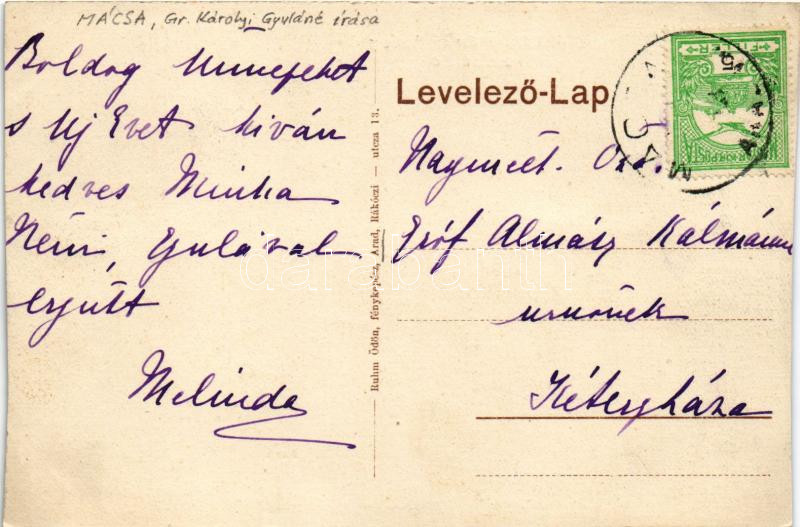 MÁCSA, Gr. Károlyi Gyuláné írása
Boldog Ünnepeket
s Uj Évet kiván
kedves Minka
Néni, Gyulával
együtt
Melinda
Ruhm Ödön, fényképész, Arad, Rákóczi - utcza 13.
Levelező-Lap
Gróf Almásy Kálmán
urnönek
Kétegyháza
darabanth